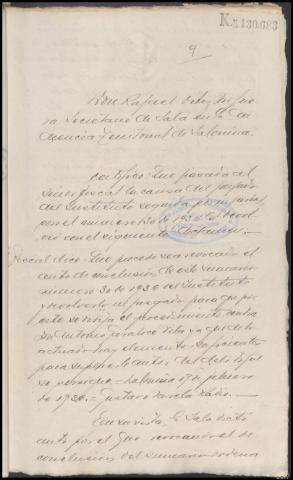 K 130.683
9
Don Rafael
Secretario de Sala en la Au-
diencia Territorial de Valencia.
Certifico: Que pasada al
Señor Fiscal la causa del Juzgado
del Instituto seguida por
con el número 30 de 1936
con el siguiente dictamen:
Fiscal dice: Que procede sea revocado el
auto de conclusión de este sumario
número 30 de 1936 del Instituto
y devolverlo al Juzgado para que por
este se dirija el procedimiento contra
Don Antonio ya que de lo
actuado hay elementos
para suponerle autor del delito que
se persigue = Valencia 17 de febrero
de 1936. = Gustavo Varela
En su vista, la Sala dictó
auto por el que revocando el de
conclusión del sumario ordena